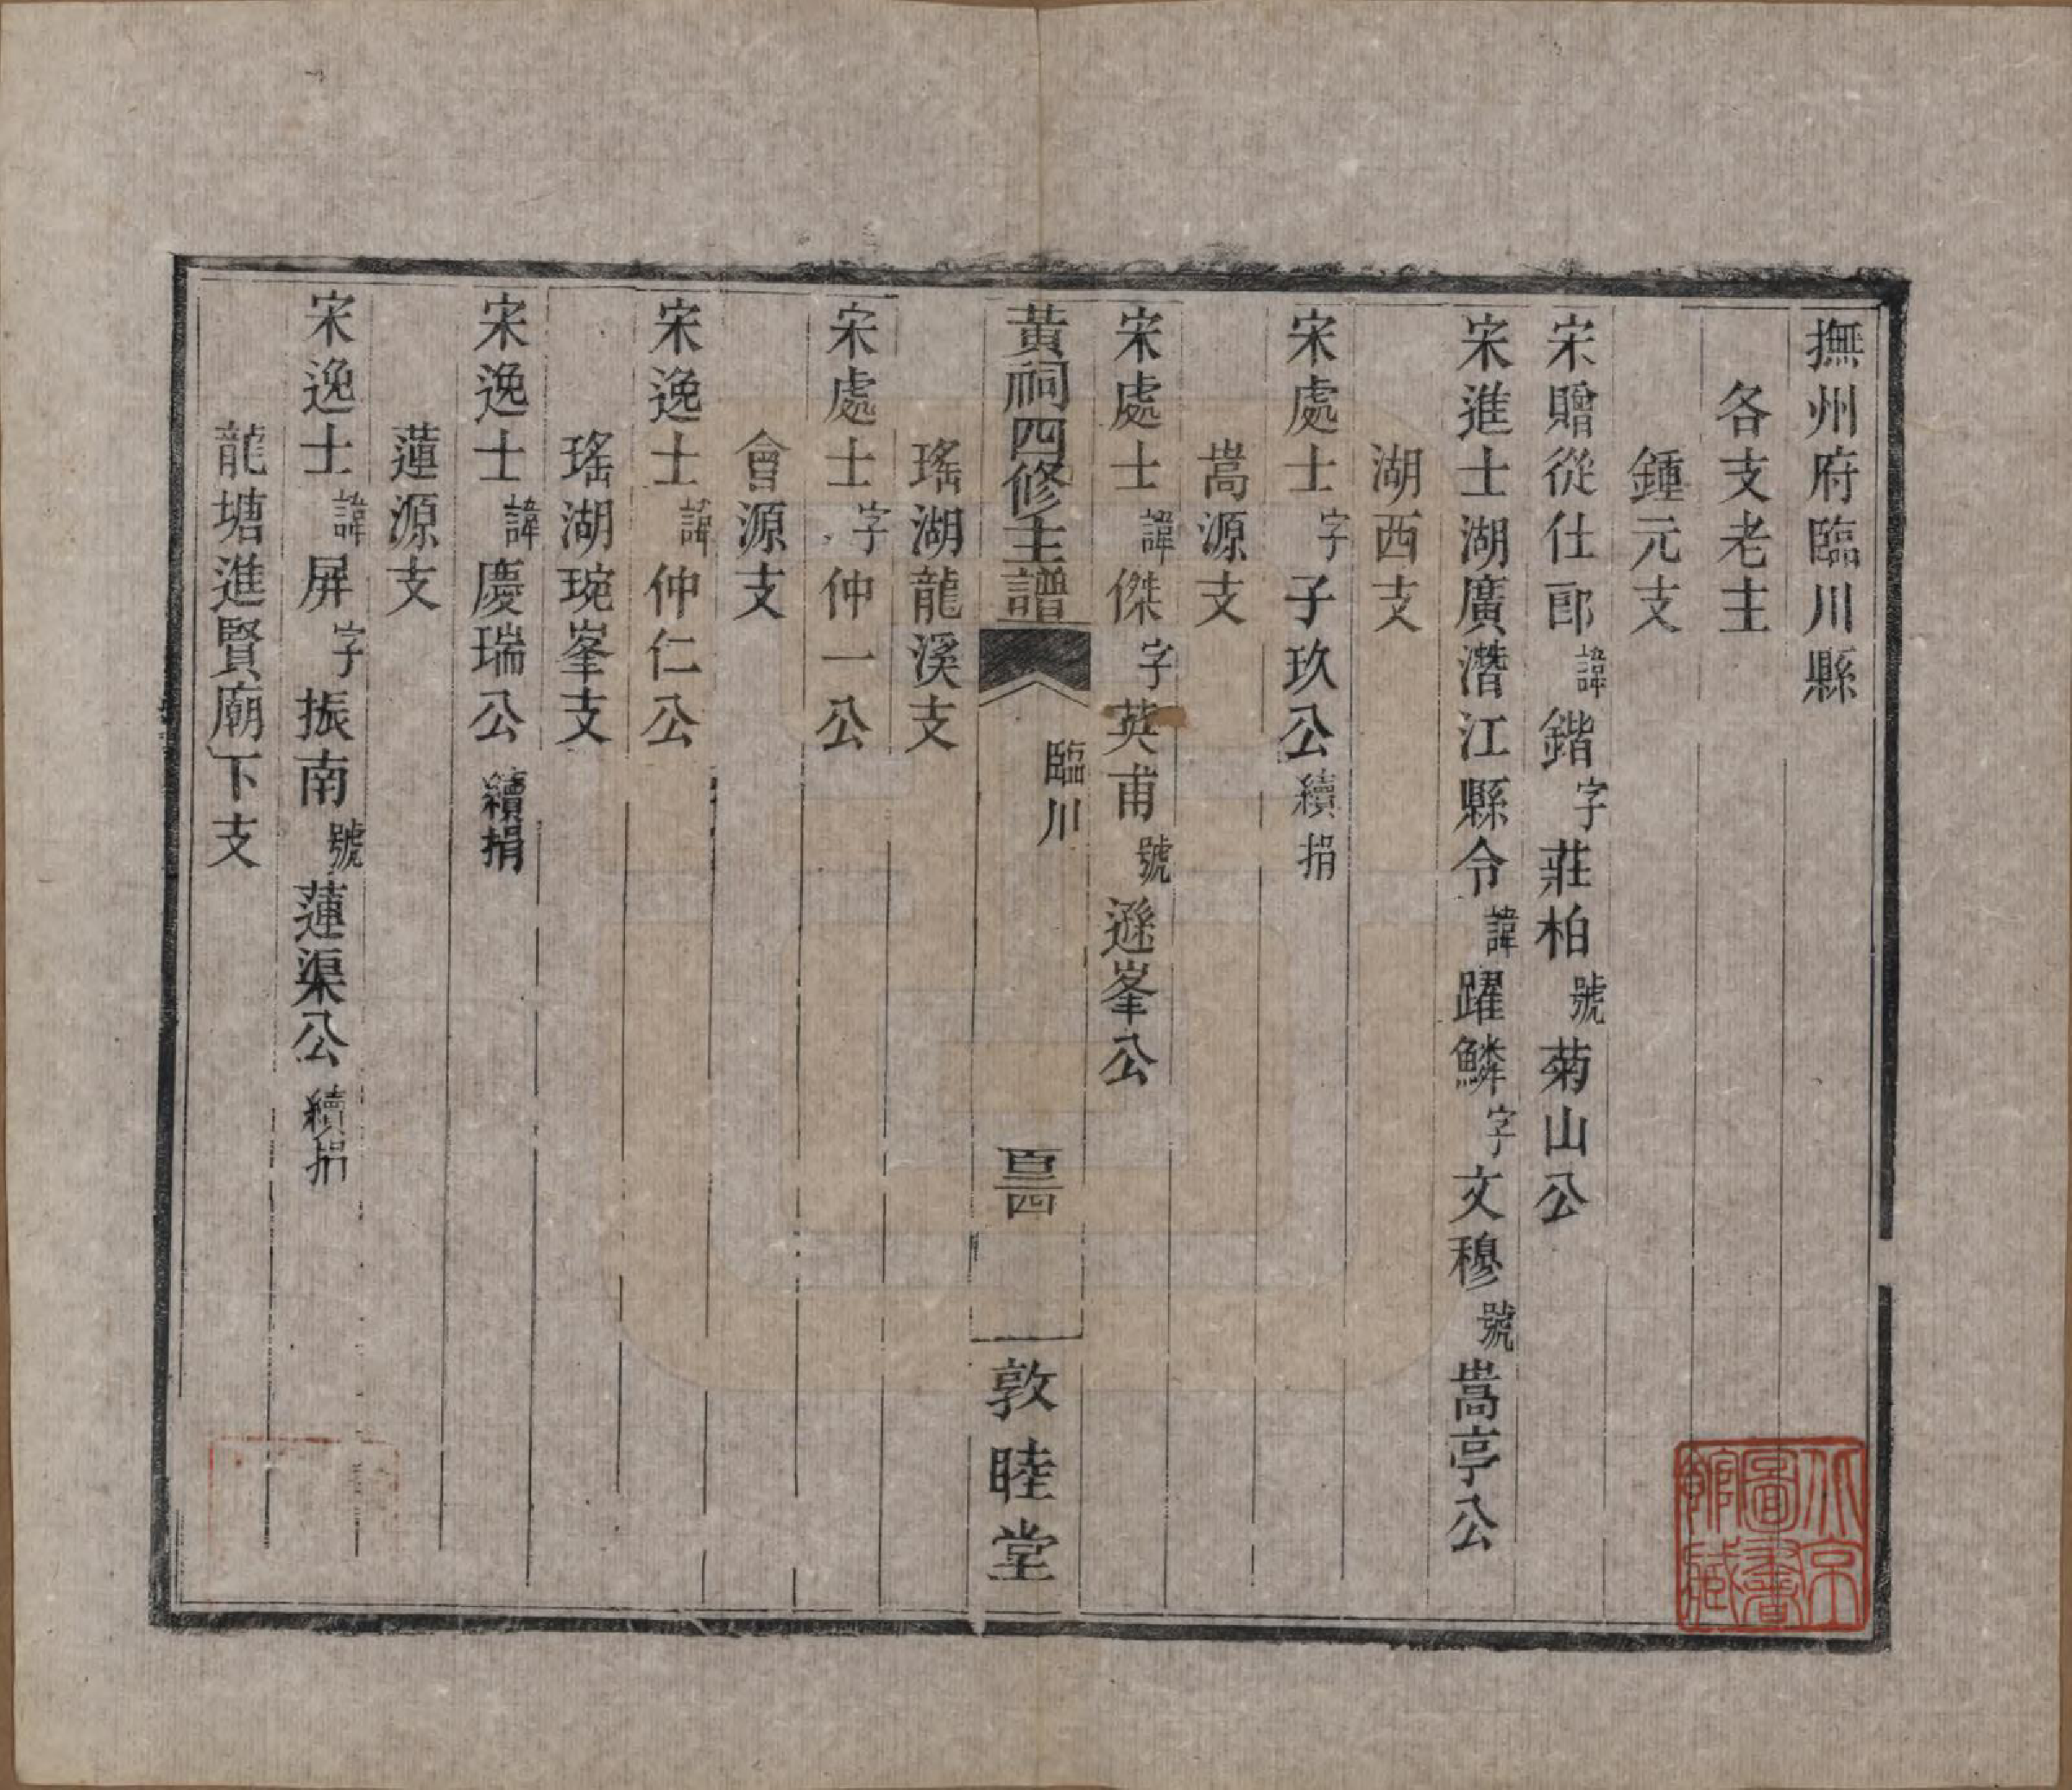 撫州府臨川縣
各支老主
鍾元支
宋贈從仕郎諱鍇字莊柏號菊山公
宋進士湖廣潛江縣令諱躍鱗字文穆號嵩亭公
湖西支
宋處士字子玖公續捐
嵩源支
宋處士諱傑字英甫號遜峯公
黃祠四修主譜
臨川
百三四
敦睦堂
瑤湖龍溪支
宋處士字仲一公
會源支
宋逸士諱仲仁公
瑤湖琬峯支
宋逸士諱慶瑞公續捐
蓮源支
宋逸士諱屏字振南號蓮渠公續捐
龍塘進賢廟下支
北京圖書館藏